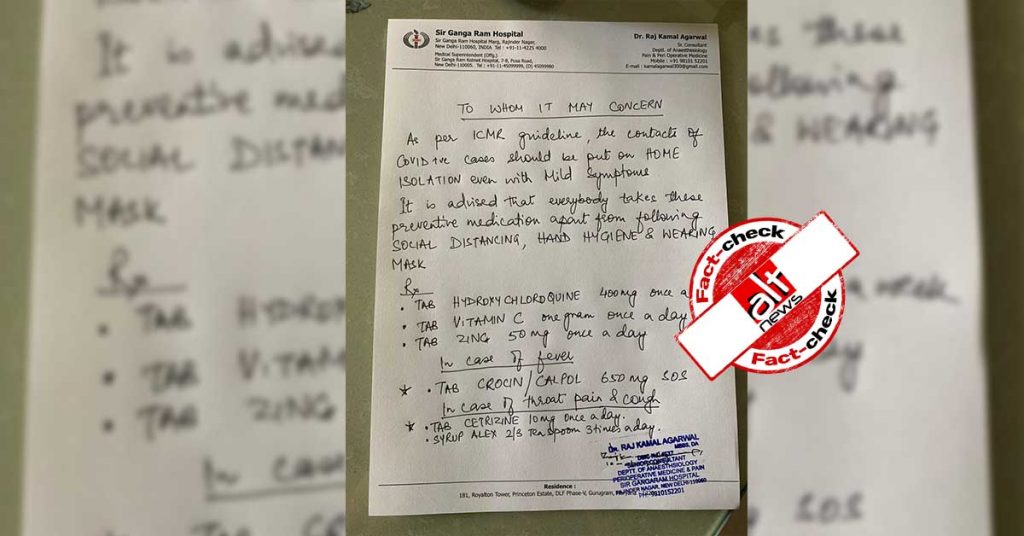 Sir Ganga Ram Hospital
Sir Ganga Ram Hospital Marg, Rajinder Nagar,
New Delhi-110060, INDIA Tel : +91-11-4225 4000
Medical Superintendent (Offg.)
Sir Ganga Ram Kolmet Hospital, 7-B, Pusa Road,
New Delhi-110005. Tel : +91-11-45099999, (D) 45099980
Dr. Raj Kamal Agarwal
Sr. Consultant
Deptt. of Anaesthesiology
Pain & Peri Operative Medicine
Mobile : +91 98101 52201
E-mail : kamalagarwal300@gmail.com
TO WHOM IT MAY CONCERN
As per ICMR guideline, the contacts of
COVID +ve cases should be put on HOME
ISOLATION even with Mild Symptoms
It is advised that everybody takes these
preventive medication apart from following
SOCIAL DISTANCING, HAND HYGIENE & WEARING
MASK
Rx
• TAB HYDROXYCHLOROQUINE 400mg once a
• TAB VITAMIN C one gram once a day
• TAB ZING 50 mg once a day
In case of fever
* • TAB CROCIN/CALPOL 650 mg SOS
In case of throat pain & cough
* • TAB CETRIZINE 10mg once a day.
• SYRUP ALEX 2/3 Tea spoon 3 times a day.
Dr. RAJ KAMAL AGARWAL
MBBS, DA
SENIOR CONSULTANT
DEPTT. OF ANAESTHSIOLOGY
PERIOPERATIVE MEDICINE & PAIN
SIR GANGARAM HOSPITAL
NAGAR, NEW DELHI-110060
PH: 9810152201
Residence :
181, Royalton Tower, Princeton Estate, DLF Phase-V, Gurugram,
Fact-check
alt
news
Fact-check